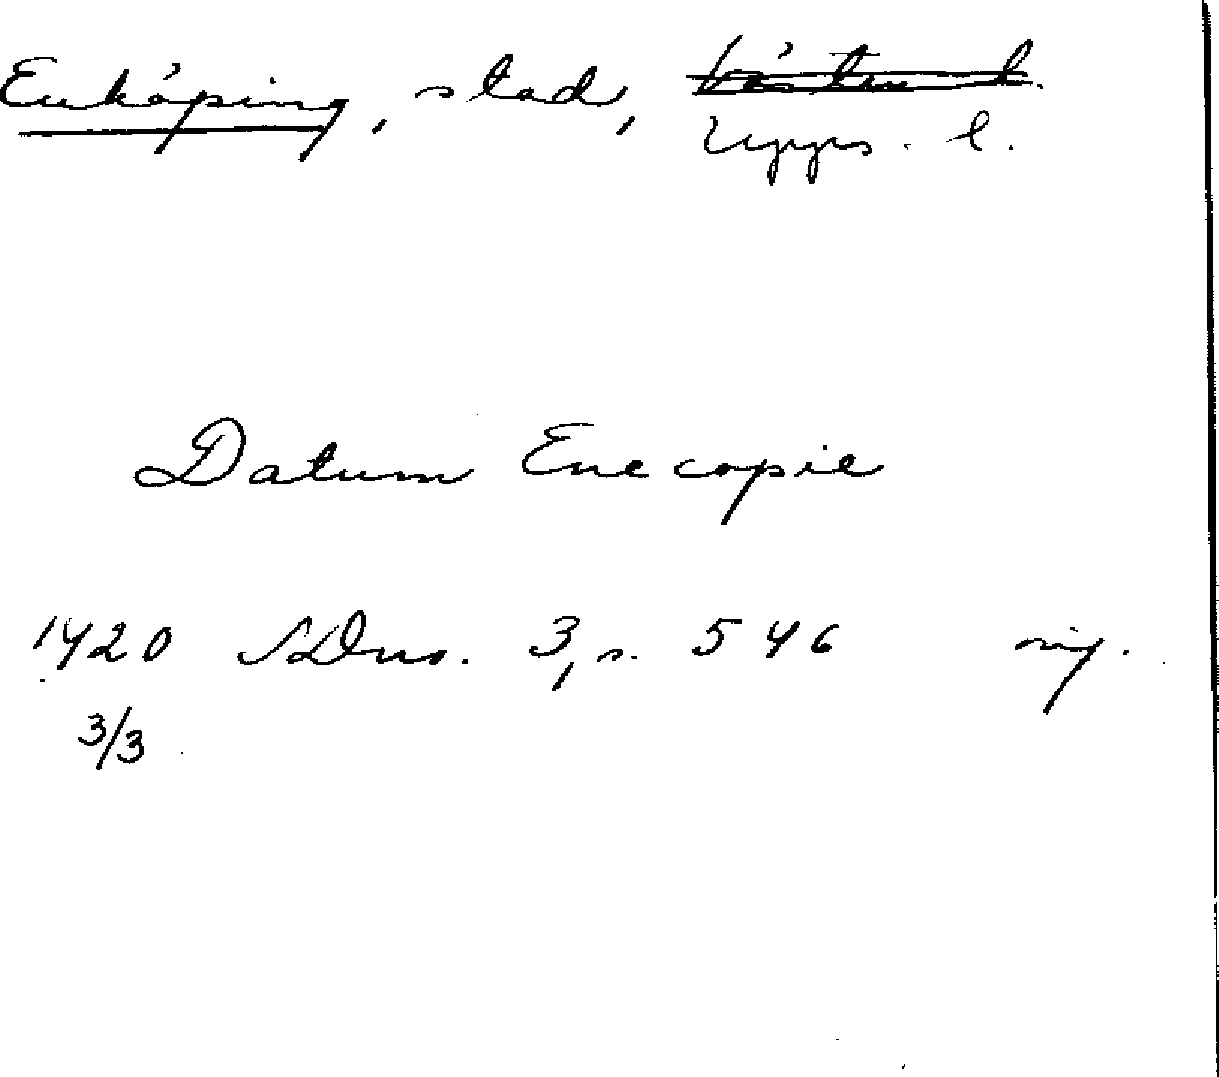 Enköping, stad, Västm l.
Upps. l.
Datum Enecopie
1420 SDns. 3, s. 546 sig.
3/3